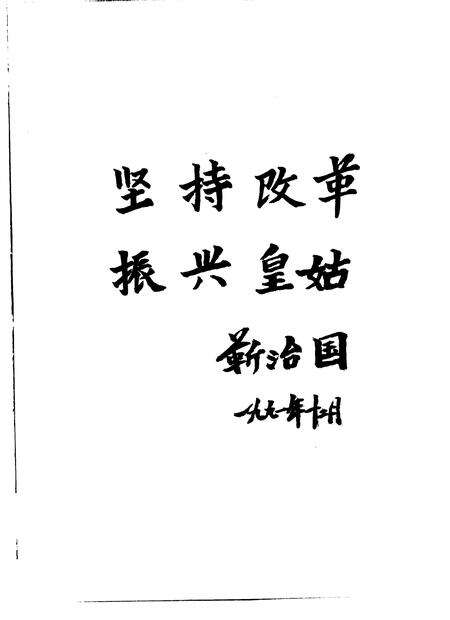 坚持改革
振兴皇姑
靳治国
一九九一年十二月